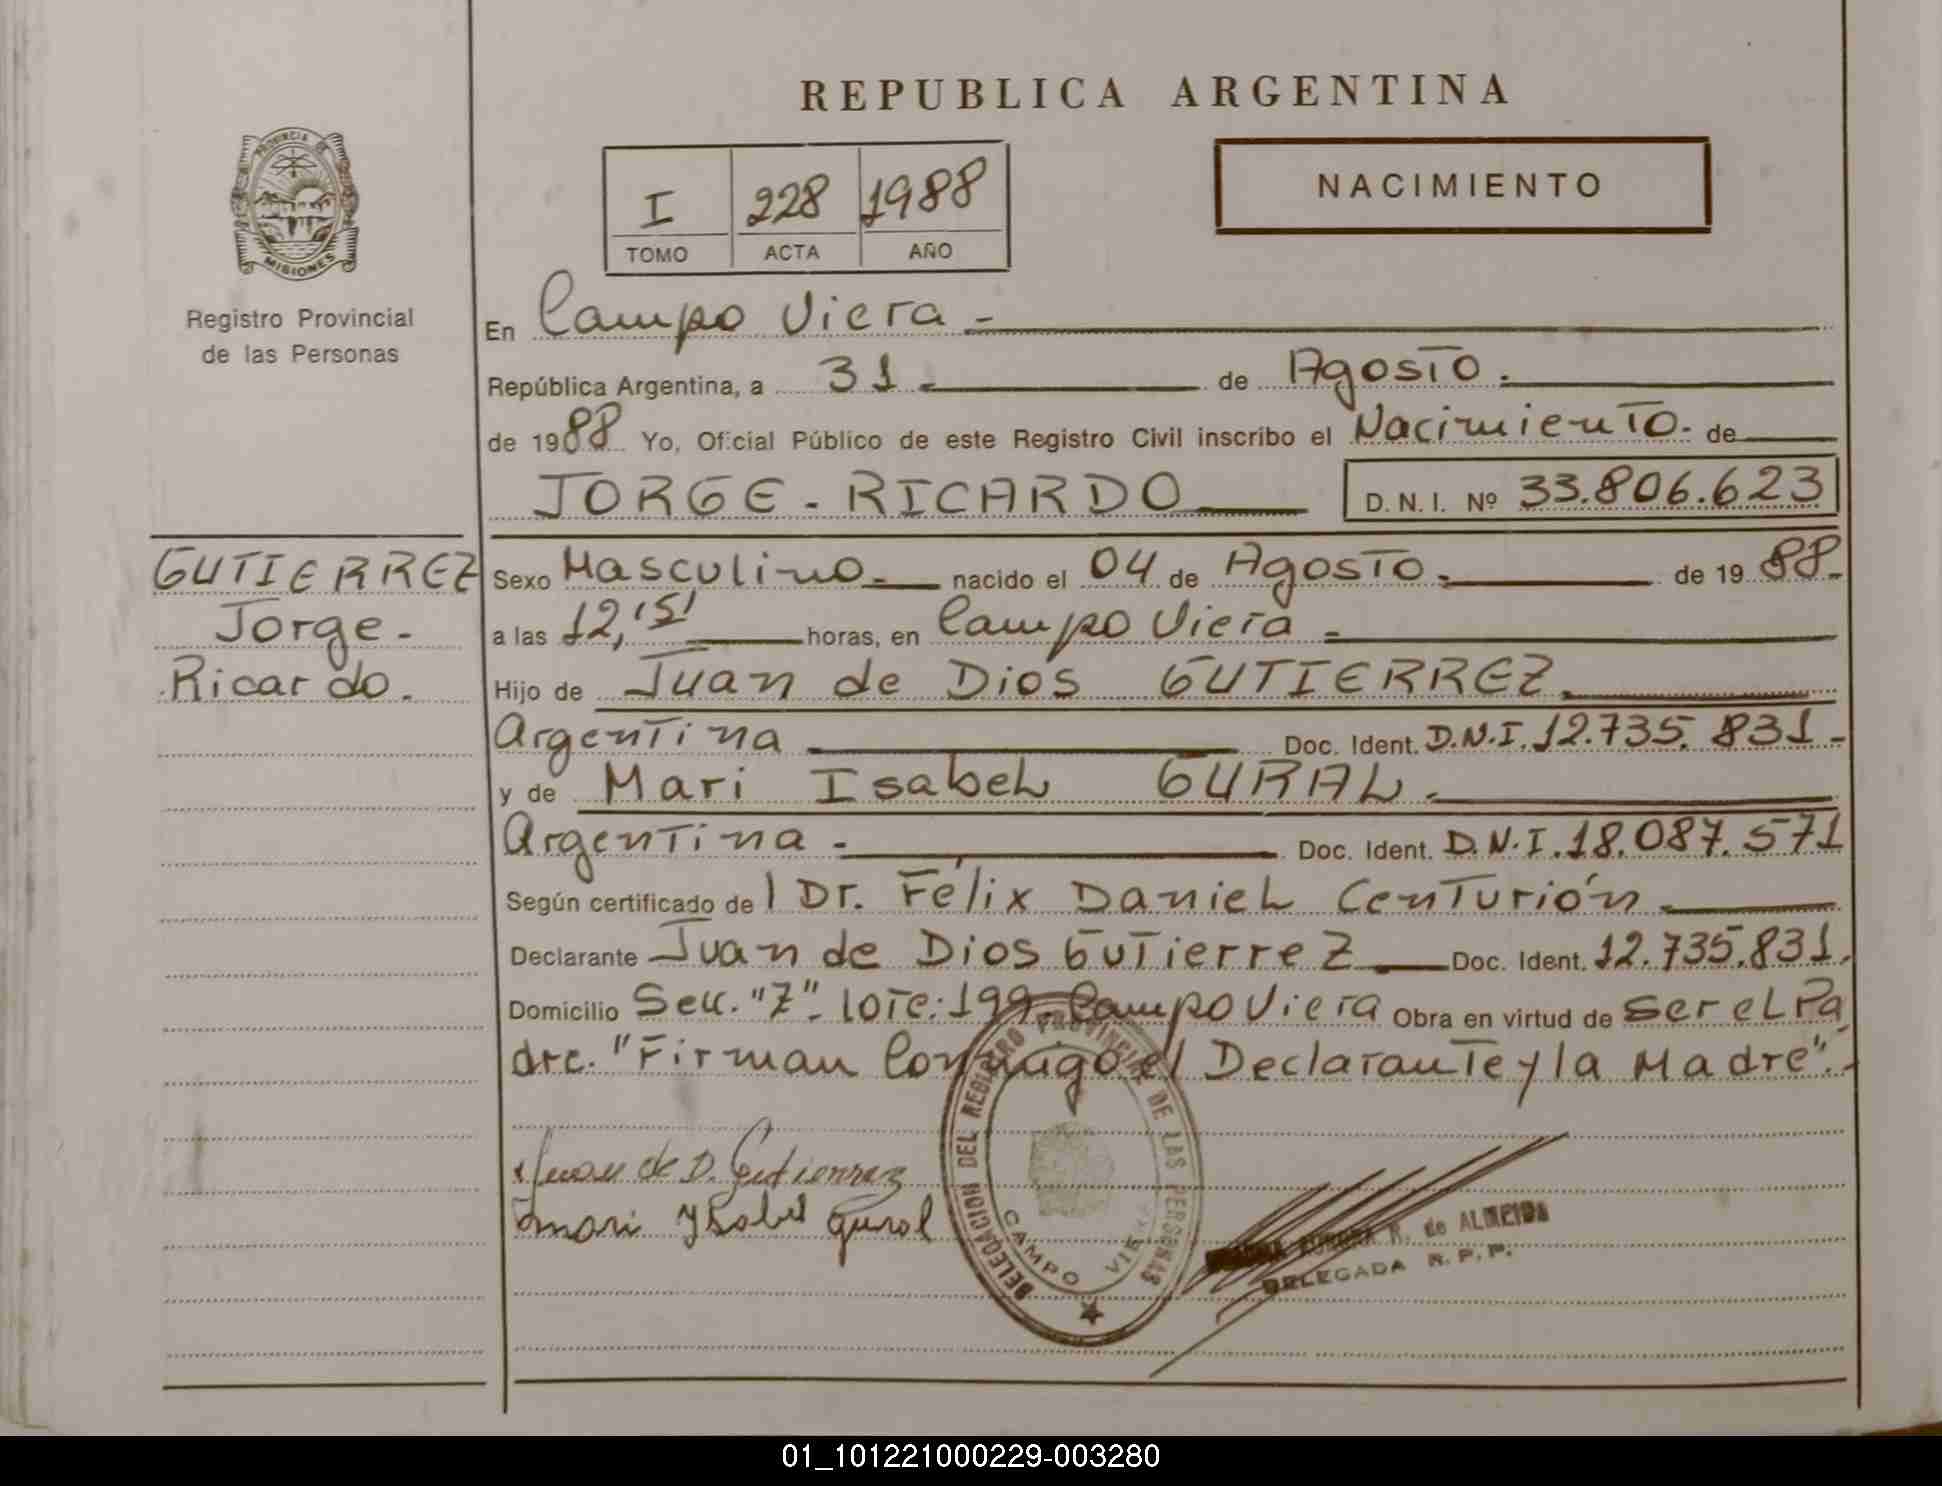 REPUBLICA ARGENTINA
PROVINCIA DE
MISIONES
Registro Provincial
de las Personas
I 228 1988
TOMO ACTA AÑO
NACIMIENTO
En Campo Viera -
República Argentina, a 31 - de Agosto.
de 1988 Yo, Oficial Público de este Registro Civil inscribo el Nacimiento. de
JORGE - RICARDO D. N. I. Nº 33.806.623
GUTIERREZ
Jorge -
Ricardo.
Sexo Masculino - nacido el 04 de Agosto. de 1988.
a las 12,15' horas, en Campo Viera -
Hijo de Juan de Dios GUTIERREZ.
Argentina Doc. Ident. D.N.I. 12.735.831-
y de Mari Isabel GURAL.
Argentina - Doc. Ident. D.N.I. 18.087.571
Según certificado de l Dr. Félix Daniel Centurión
Declarante Juan de Dios Gutierrez Doc. Ident. 12.735.831.
Domicilio Secc. "Z" - lote: 199 Campo Viera Obra en virtud de ser el Pa
dre. "Firman Conmigo el Declarante y la Madre".-
Juan de D. Gutierrez
mari Ysabel gural
DELEGACION DEL REGISTRO PROVINCIAL DE LAS PERSONAS
CAMPO VIERA
R. de ALMEIDA
DELEGADA R. P. P.
01_101221000229-003280